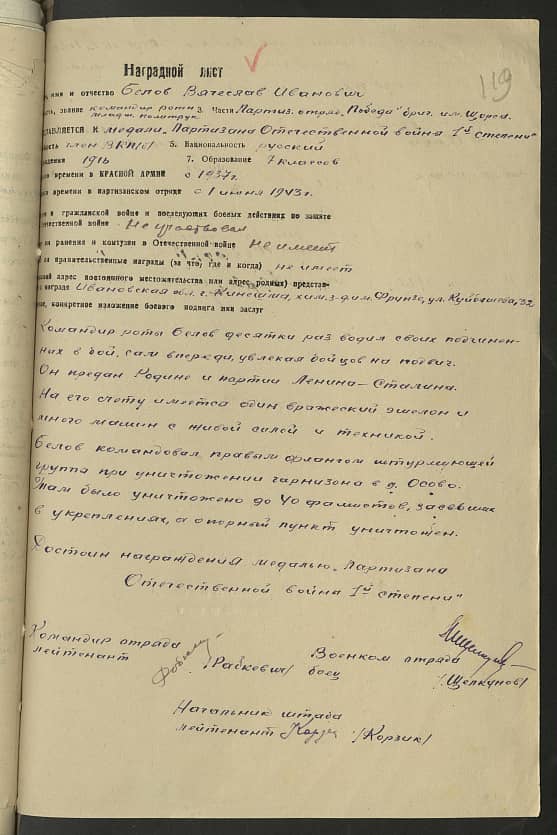 119
Наградной лист
, имя и отчество Белов Вячеслав Иванович
ть, звание командир роты 3. Часть Партиз. отряд „Победа" бриг. им. Щорса.
младш. политрук
ставляется к медали „Партизана Отечественной война 1й степени"
ность член ВКП(б) 5. Национальность русский
ждения 1916 7. Образование 7 классов
кого времени в КРАСНОЙ АРМИИ с 1937г.
кого времени в партизанском отряде с 1 июня 1943г.
ие в гражданской войне и последующих боевых действиях по защите
течественной войне Не участвовал
ли ранения и контузии в Отечественной войне не имеет
ли правительственные награды (за что, где и когда) не имеет
вой адрес постоянного местожительства или адрес родных) представ-
к награде Ивановская обл. г. Кинешма, хим. з-д им. Фрунзе, ул. Куйбышева, 32
ое, конкретное изложение боевого подвига или заслуг
Командир роты Белов десятки раз водил своих подчинен-
них в бой, сам впереди, увлекая бойцов на подвиг.
Он предан Родине и партии Ленина–Сталина.
На его счету имеется один вражеский эшелон и
много машин с живой силой и техникой.
Белов командовал правым флангом штурмующей
группа при уничтожении гарнизона в д. Осово.
Там было уничтожено до 40 фашистов, засевших
в укреплениях, а опорный пункт уничтожен.
Достоин награждения медалью „Партизана
Отечественной война 1й степени"
Командир отряда
лейтенант /Рабкевич/
Военком отряда
боец /Щелкунов/
Начальник штаба
лейтенант /Корзик/